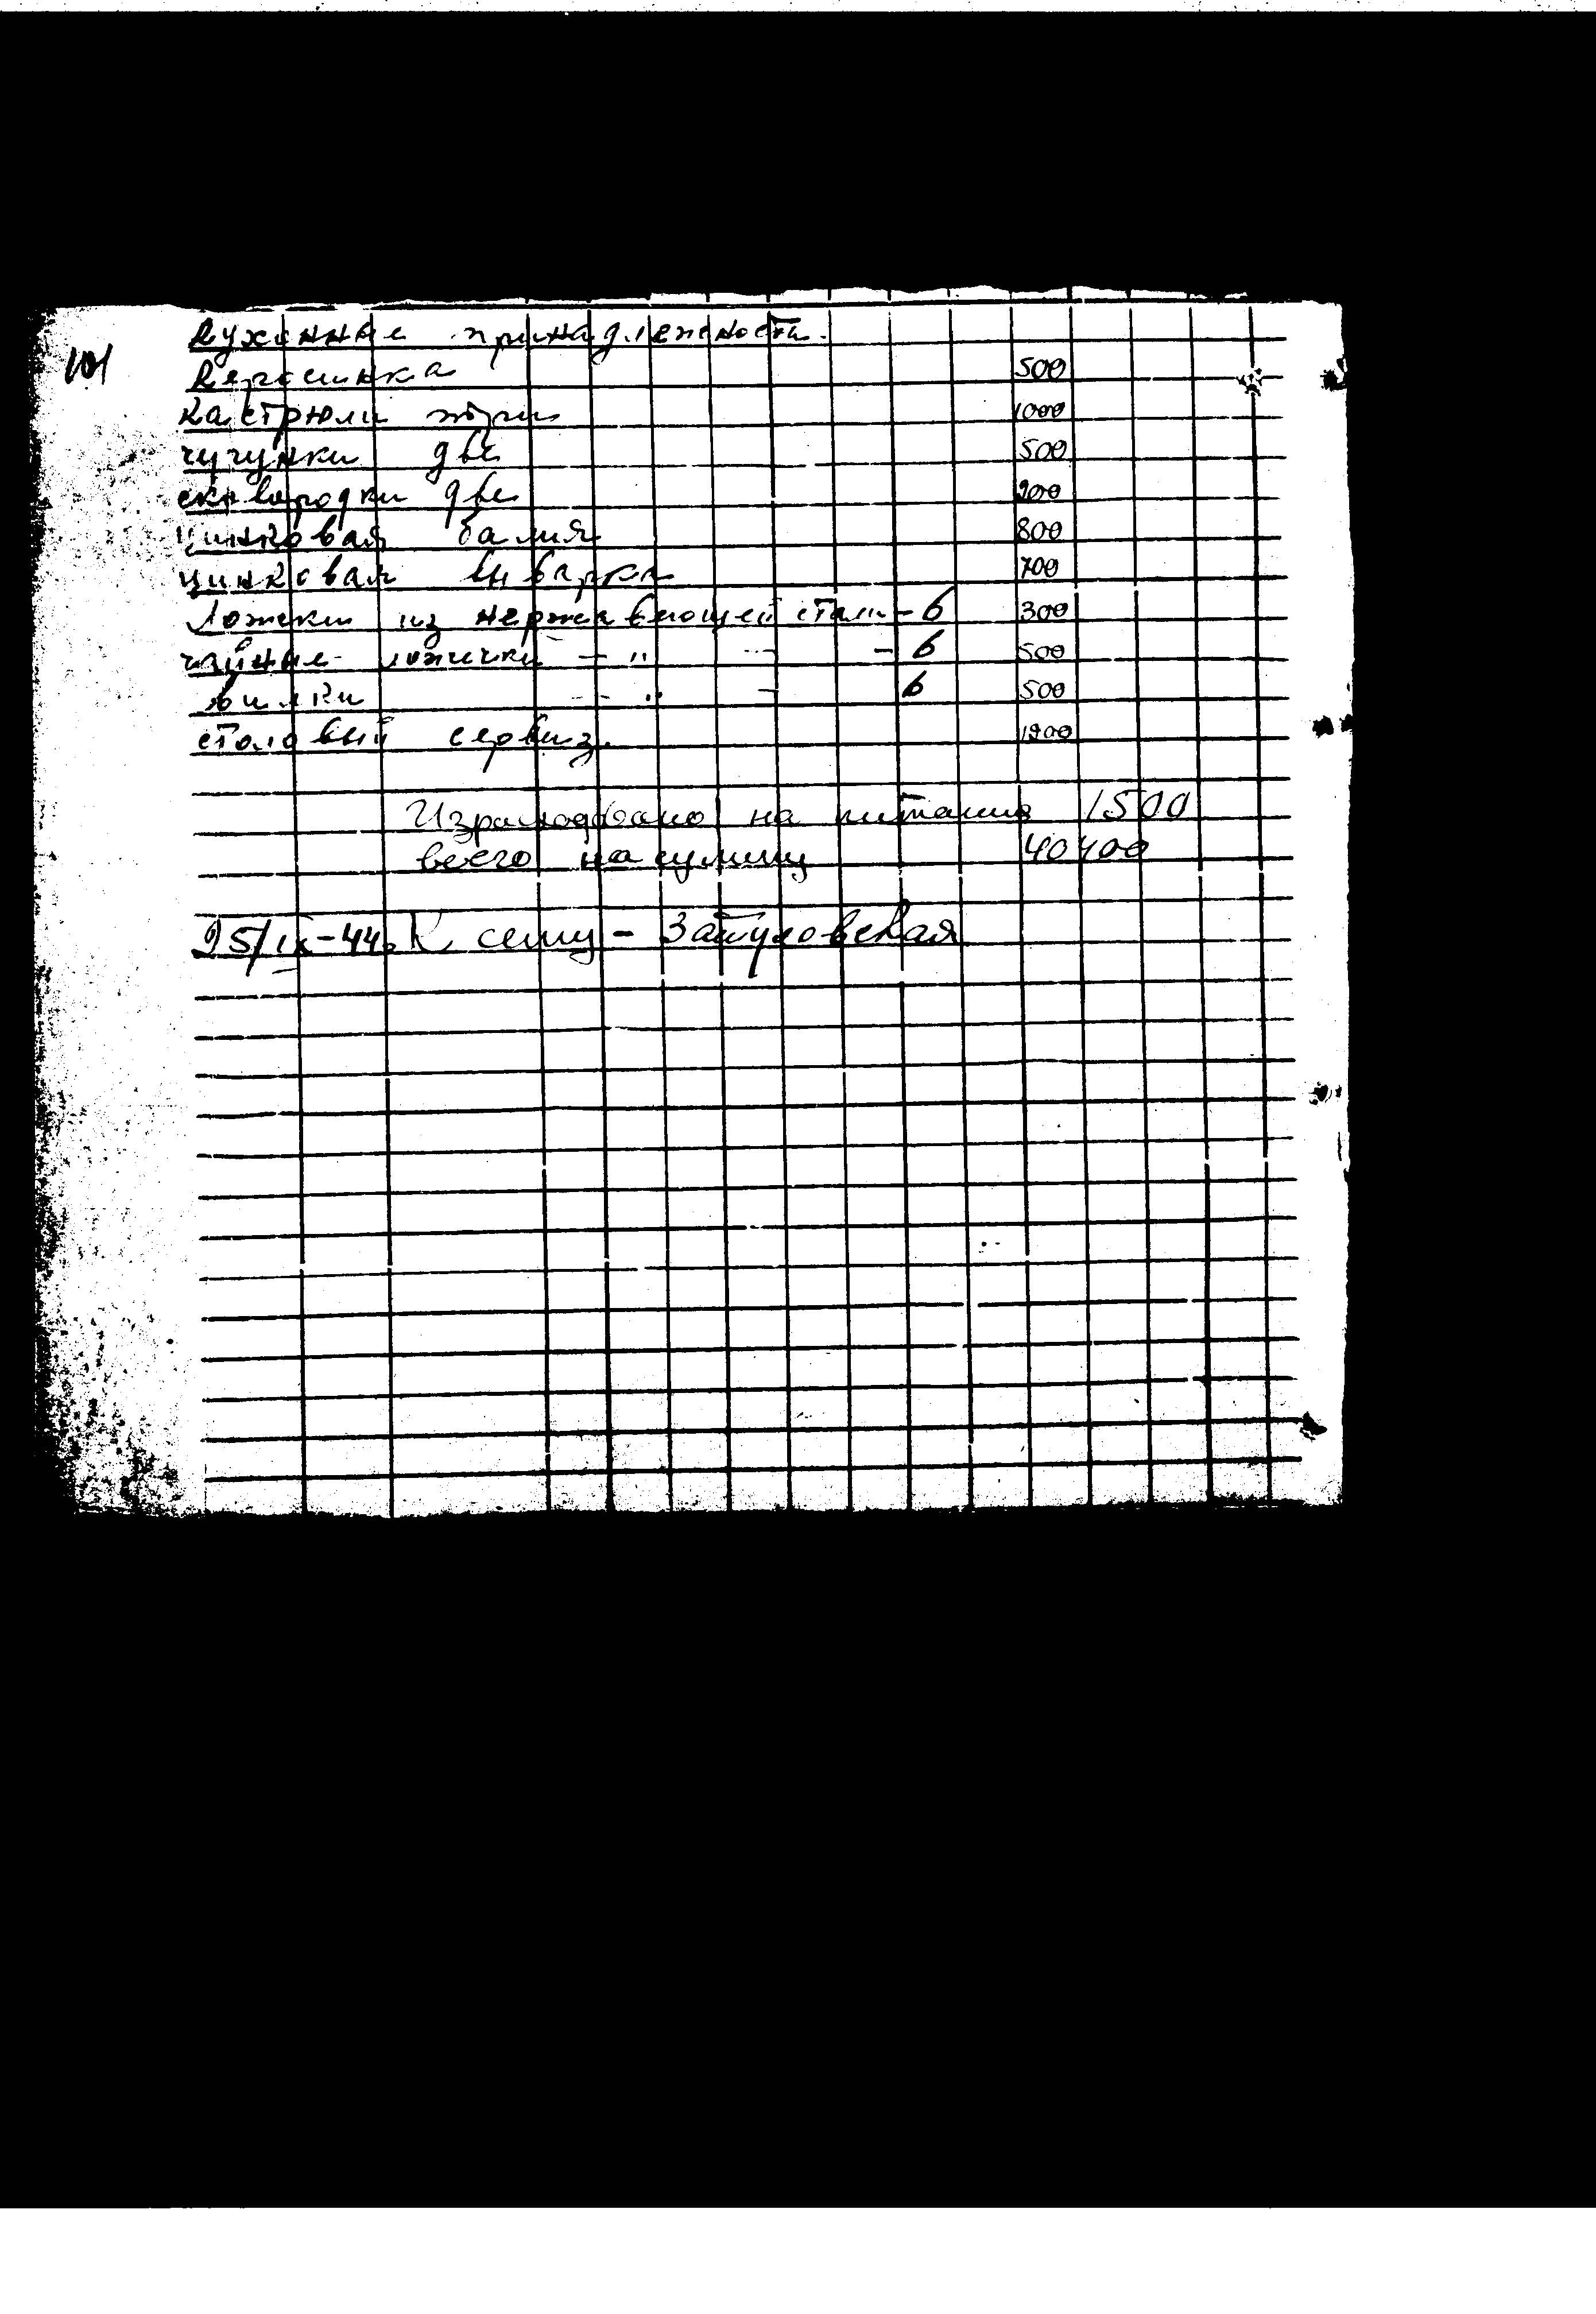 101
Кухонные принадлежности.
Керосинка 500
Кастрюли три 1000
чугунки две 500
сковородки две 200
цинковая балия 800
цинковая выварка 700
Ложки из нержавеющей стали - 6 300
чайные ложечки - " - - 6 500
вилки - " - 6 500
столовый сервиз. 1200
Израсходовано на питание 1500
всего на сумму 40400
25/IX-44г. К сему -